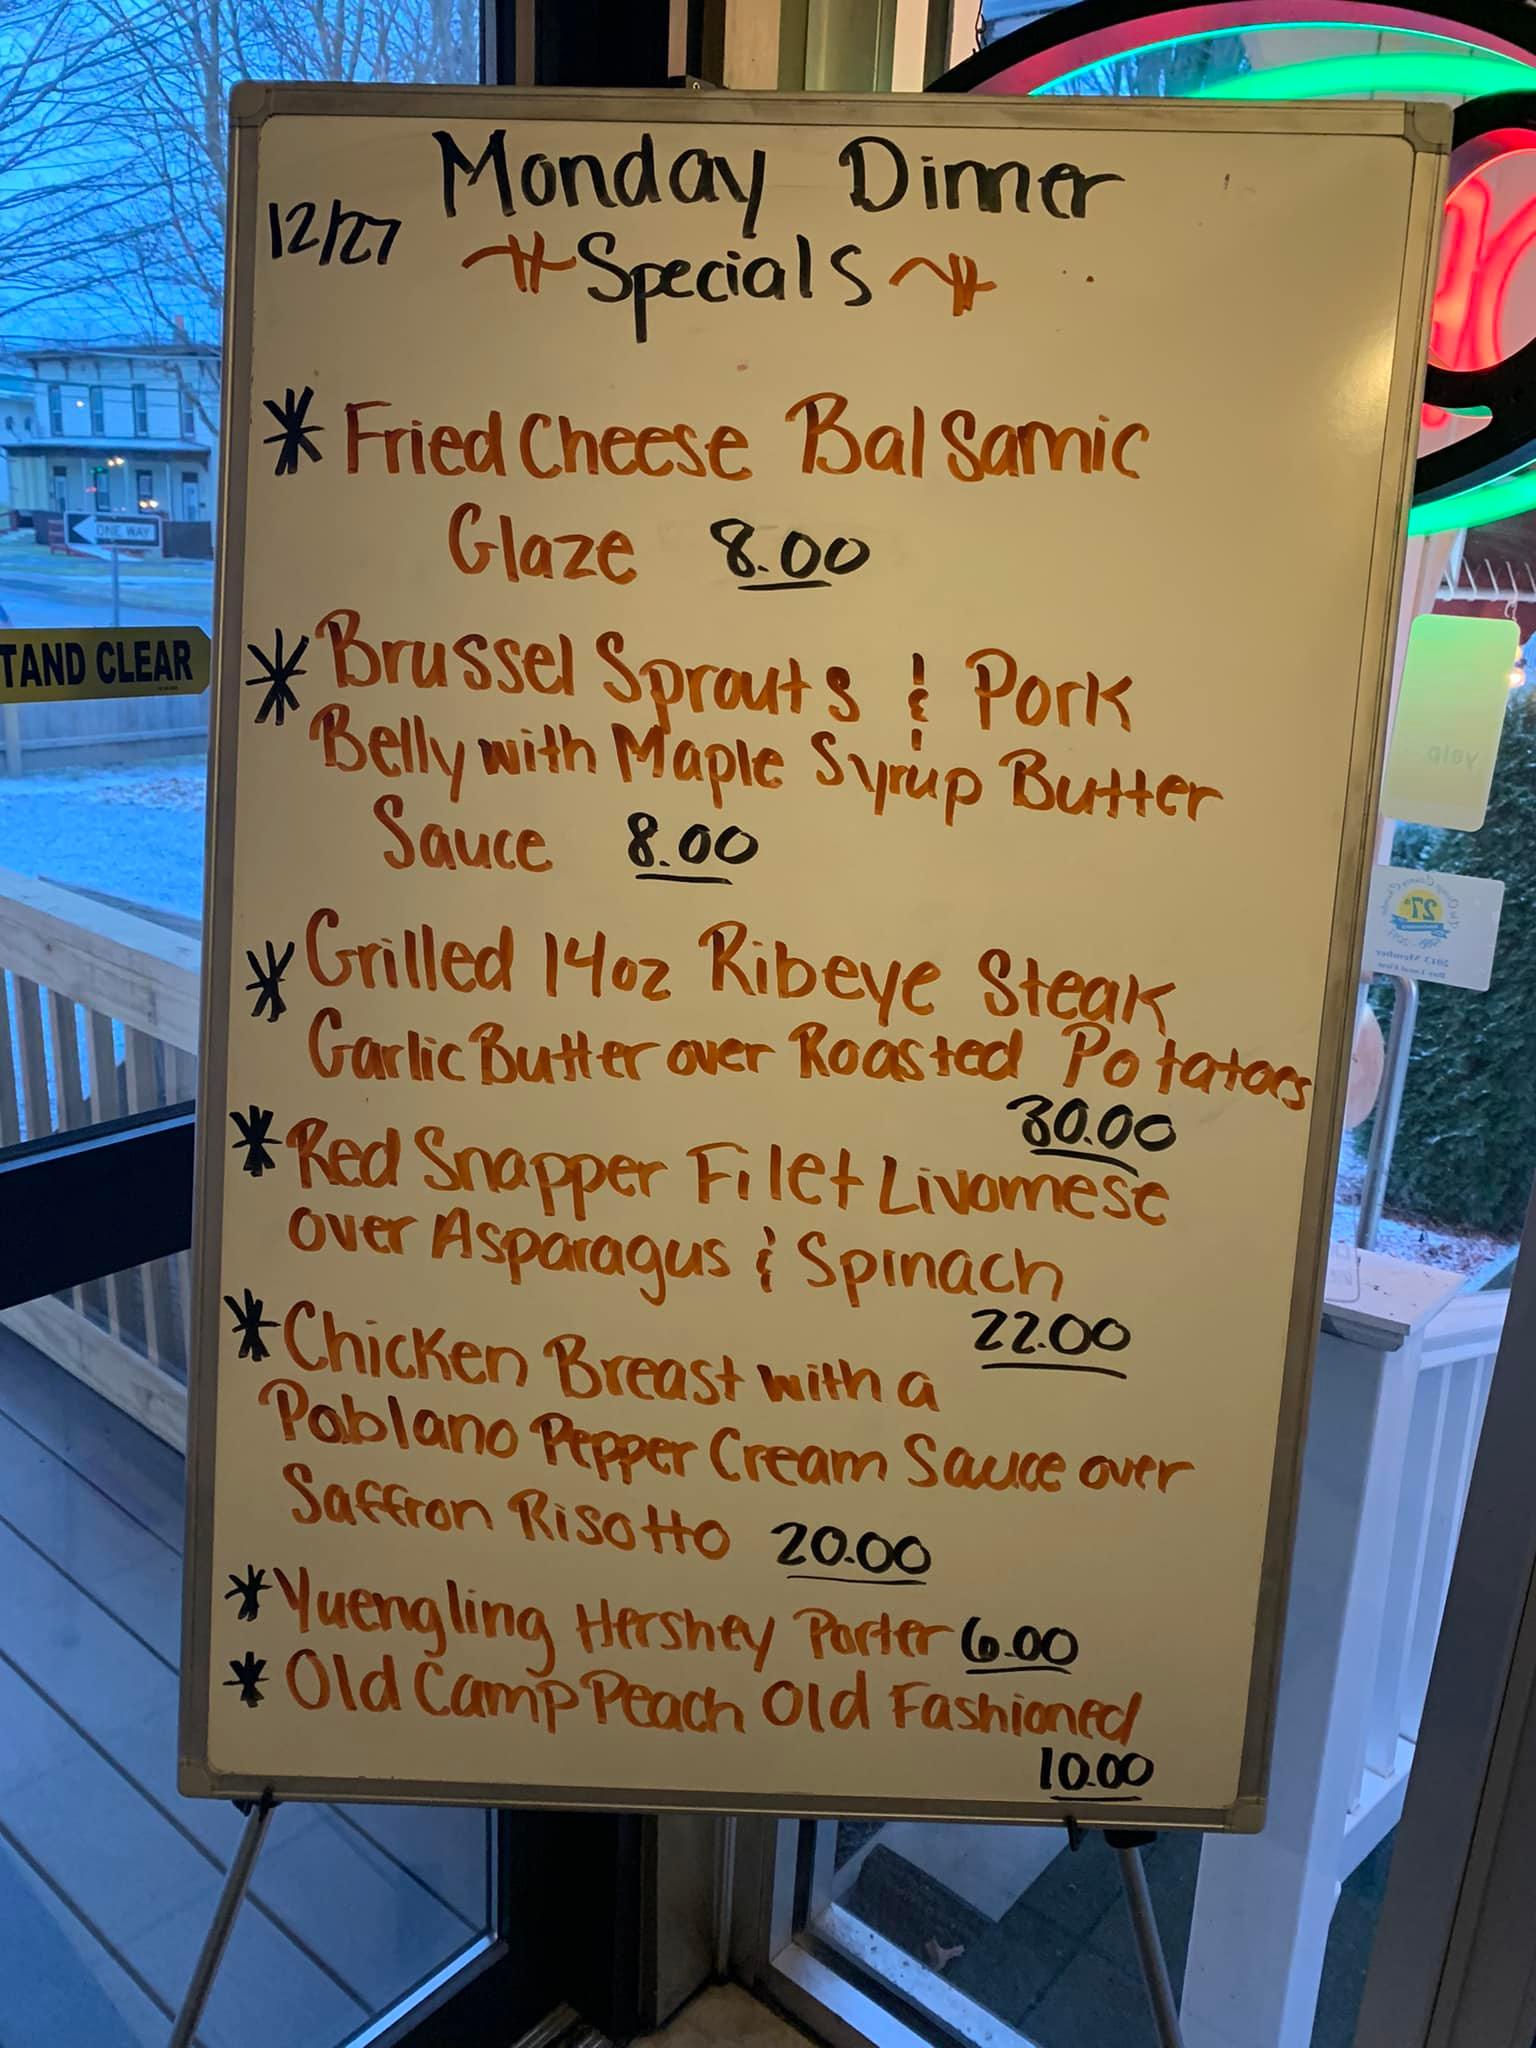 Monday Dinner
12/27
Specials
* Fried Cheese Balsamic
Glaze 8.00
* Brussel Sprouts & Pork
Belly with Maple Syrup Butter
Sauce 8.00
* Grilled 14oz Ribeye Steak
Garlic Butter over Roasted Potatoes
30.00
* Red Snapper Filet Livornese
over Asparagus & Spinach
22.00
* Chicken Breast with a
Poblano Pepper Cream Sauce over
Saffron Risotto 20.00
* Yuengling Hershey Porter 6.00
* Old Camp Peach Old Fashioned
10.00
ONE WAY
TAND CLEAR
yelp
27
2013 Member
Buy Local First